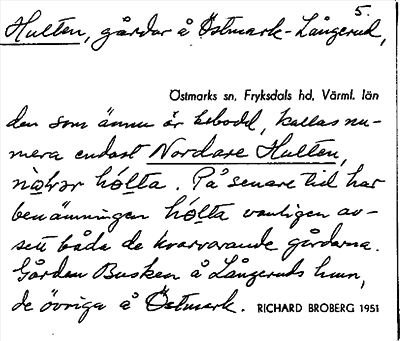 5.
Hulten, gårdar å Östmark-Långerud,
Östmarks sn, Fryksdals hd, Värml. län
den som ännu är bebodd, kallas nu-
mera endast Nordare Hulten,
hól̲ta. På senare tid har
benämningen hól̲ta vanligen av-
sett båda de kvarvarande gårdarna.
Gården Busken å Långeruds hmn,
de övriga å Östmark. RICHARD BROBERG 1951